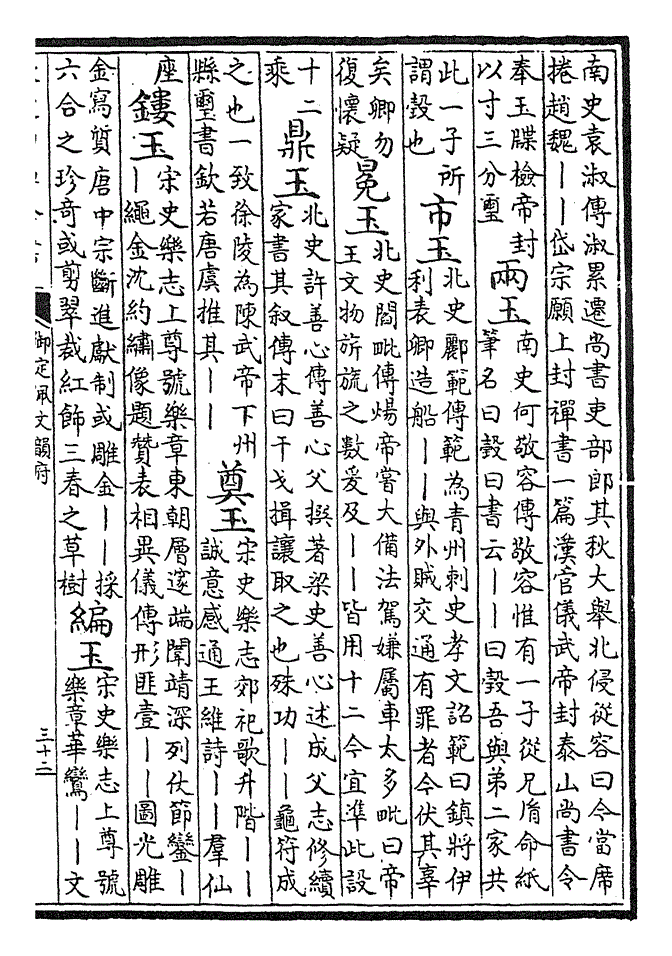 南史袁淑傳淑累遷尚書吏部郎其秋大舉北侵從容曰今當席
捲趙魏——岱宗願上封禪書一篇漢官儀武帝封泰山尚書令
奉玉牒檢帝封
以寸三分璽
兩玉
南史何敬容傳敬容惟有一子從兄胤命紙
筆名曰瑴曰書云——曰瑴吾與弟二家共
此一子所
謂瑴也
市玉
北史酈範傳範為青州刺史孝文詔範曰鎮將伊
利表卿造船——與外賊交通有罪者今伏其辜
矣卿勿
復懷疑
冕玉
北史閻毗傳煬帝嘗大備法駕嫌屬車太多毗曰帝
王文物旂旒之數爰及——皆用十二今宜準此設
十二
乘
鼎玉
北史許善心傳善心父撰著梁史善心述成父志修續
家書其叙傳末曰干戈揖讓取之也殊功——龜符成
之也一致徐陵為陳武帝下州
縣璽書欽若唐虞推其——
奠玉
宋史樂志郊祀歌升階——
誠意感通王維詩——羣仙
座
鏤玉
宋史樂志上尊號樂章東朝層邃端闈靖深列仗節鑾—
—繩金沈約繡像題贊表相異儀傳形匪壹——圖光雕
金寫質唐中宗斷進獻制或雕金——採
六合之珍奇或剪翠裁紅飾三春之草樹
編玉
宋史樂志上尊號
樂章華鸞——文
御定佩文韻府
三十二